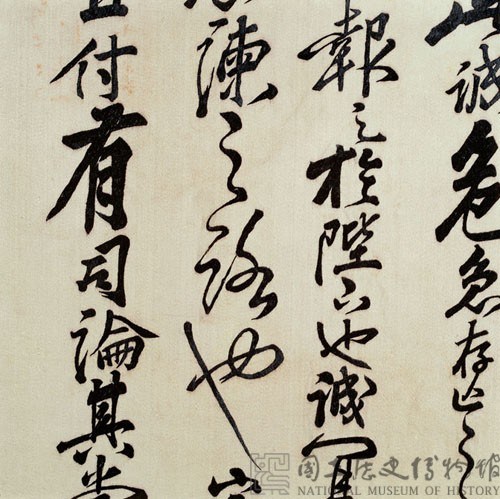 此誠危急存亡之
報之於陛下也誠宜
諫之路也
宜付有司論其
國立歷史博物館
NATIONAL MUSEUM OF HISTORY